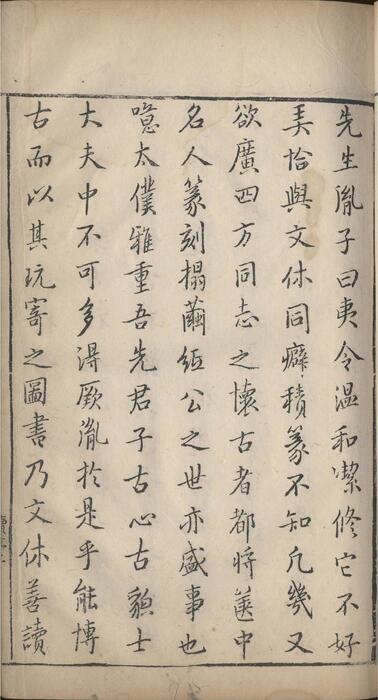 先生胤子曰夷令温和潔修它不好
弄恰與文休同癖積篆不知凡幾又
欲廣四方同志之懷古者都將篋中
名人篆刻搨繭紙公之世亦盛事也
噫太僕雅重吾先君子古心古貌士
大夫中不可多淂厥胤於是乎能博
古而以其玩寄之圖書乃文休善讀